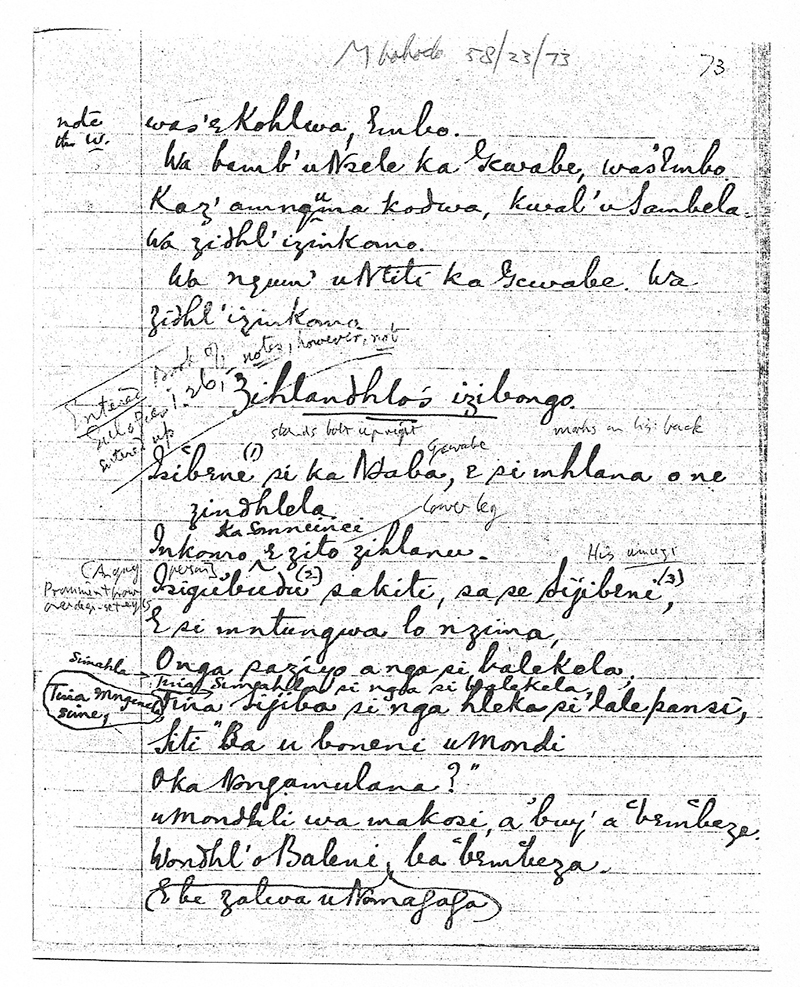 58/23/73
73
note
this w.
was'e Kohlwa, Embo.
Wa bamb' u Nsele ka Gcwabe, was'Embo.
Kaz' amnquma kodwa, kwal' u Sambela.
Wa zidhl' izinkomo.
Wa nqum' u Ntiti ka Gcwabe. Wa
zidhl' izinkomo.
Entered
Book of notes, however, not
Zihlandhlo's izibongo.
stands bolt upright
marks on his back
Gcwabe
Isibene (1) si ka Ndaba, e si mhlana o ne
zindhlela
lower leg
Inkomo E zito zihlanu.
His umuzi
[person]
Isigubudu (2) sakiti, sa se Sijibeni, (3)
E si mntungwa lo nzima,
Onga saziyo anga si balekela;
Simahla
Tina Simahla si nga si balekela,
Tina Mngeneli
Tina Sijiba si nga hleka si lale pansi,
Siti "Ba u boneni u Mondi
Oka Nongamulana?"
uMondhli wa makosi, a 'buy' a 'bembeze.
Wondhl' o Baleni, ba 'bembeza.
(E be zalwa u Nomagaga)